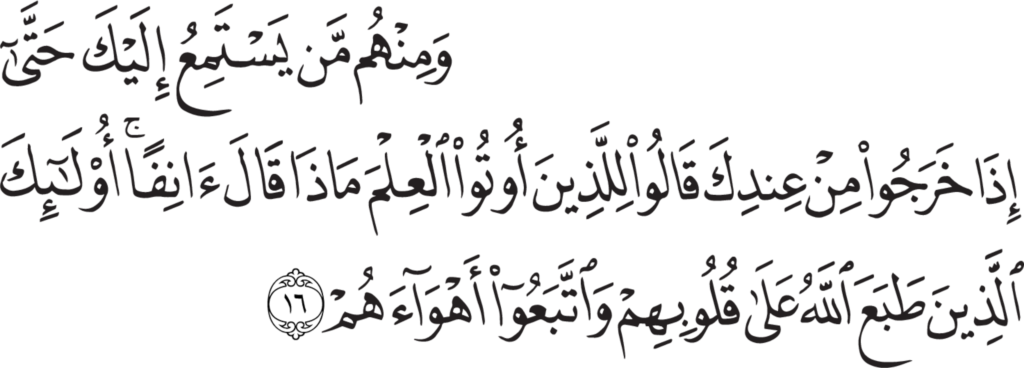 وَمِنْهُم مَّن يَسْتَمِعُ إِلَيْكَ حَتَّىٰٓ
إِذَا خَرَجُوا۟ مِنْ عِندِكَ قَالُوا۟ لِلَّذِينَ أُوتُوا۟ ٱلْعِلْمَ مَاذَا قَالَ ءَانِفًا ۚ أُو۟لَـٰٓئِكَ
ٱلَّذِينَ طَبَعَ ٱللَّهُ عَلَىٰ قُلُوبِهِمْ وَٱتَّبَعُوٓا۟ أَهْوَآءَهُمْ ١٦